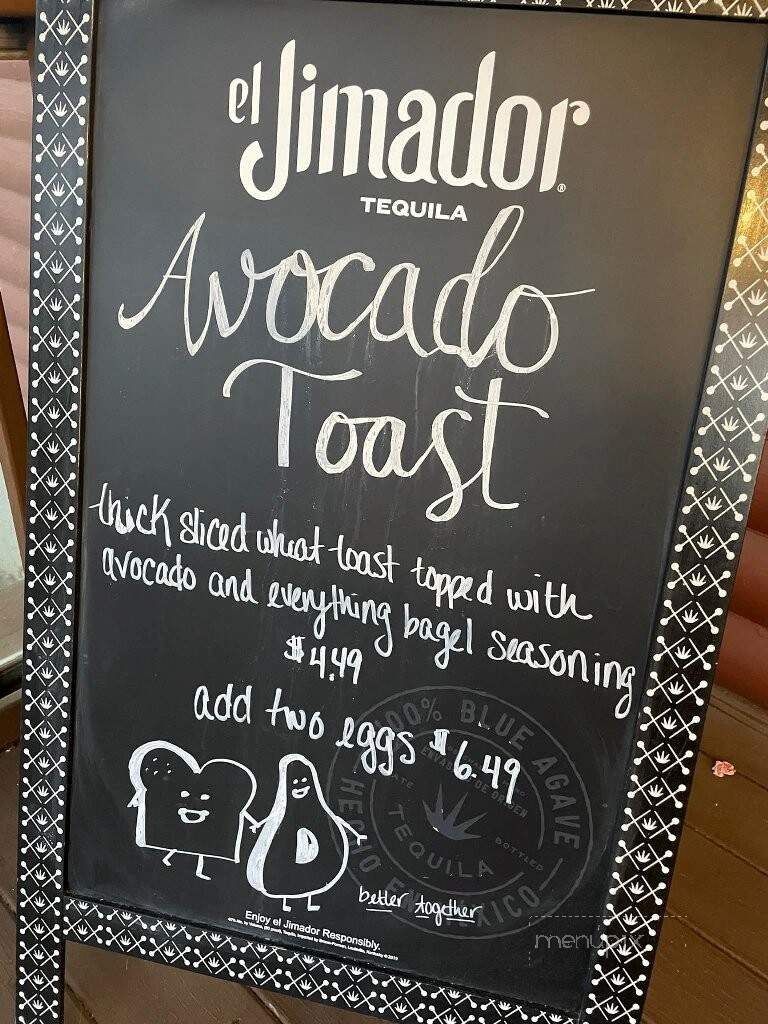 el Jimador®
TEQUILA
Avocado
Toast
thick sliced wheat toast topped with
avocado and everything bagel seasoning
$4.49
add two eggs $6.49
100% BLUE AGAVE
TEQUILA
BOTTLED
HECHO EN MEXICO
better together
Enjoy el Jimador Responsibly.
menupix